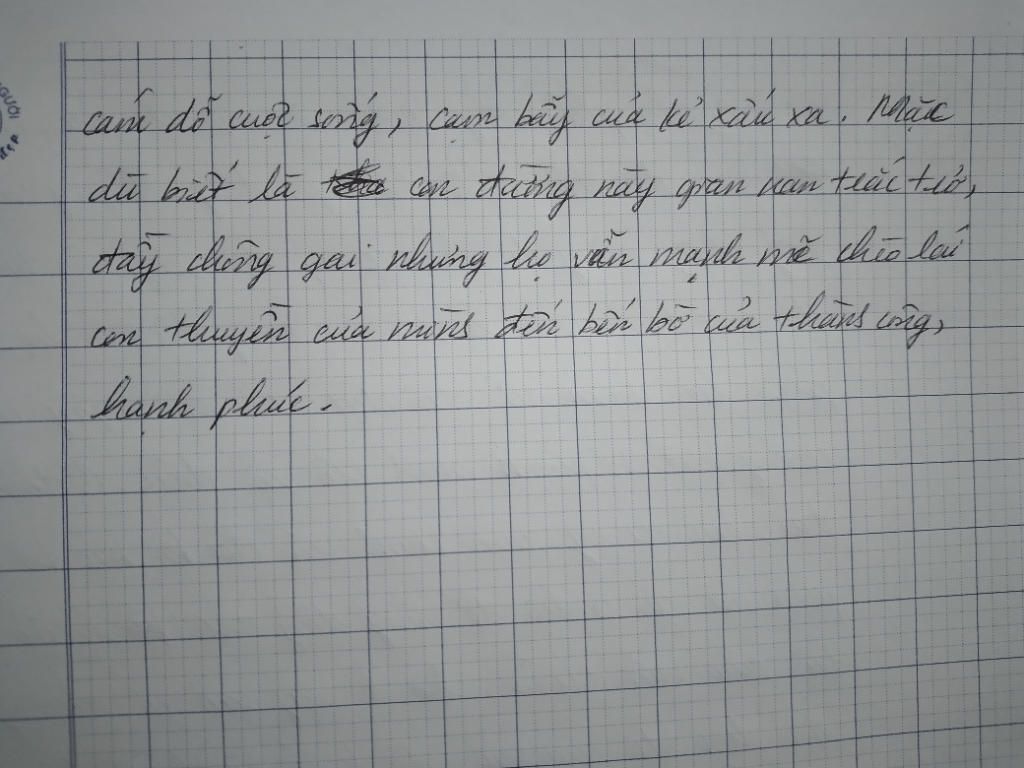 GƯỜI
ĐẸP
cám dỗ cuộc sống, cạm bẫy của kẻ xấu xa. Mặc
dù biết là con đường này gian nan trắc trở,
đầy chông gai nhưng họ vẫn mạnh mẽ chèo lái
con thuyền của mình đến bến bờ của thành công,
hạnh phúc.